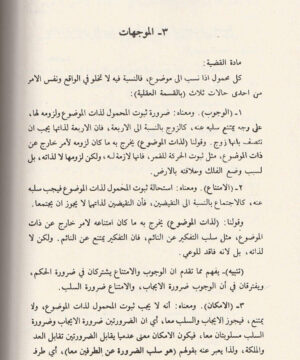 ٣ـ الموجهات
مادة القضية:
كل محمول اذا نسب الى موضوع، فالنسبة فيه لا تخلو في الواقع ونفس الامر
من احدى حالات ثلاث (بالقسمة العقلية):
١ـ (الوجوب). ومعناه: ضرورة ثبوت المحمول لذات الموضوع ولزومه لها،
على وجه يمتنع سلبه عنه، كالزوج بالنسبة الى الاربعة، فان الاربعة لذاتها يجب ان
تتصف بانها زوج. وقولنا (لذات الموضوع) يخرج به ما كان لزومه لامر خارج عن
ذات الموضوع، مثل ثبوت الحركة للقمر، فانها لازمة له، ولكن لزومها لا لذاته، بل
لسبب وضع الفلك وعلاقته بالارض.
٢ـ (الامتناع). ومعناه: استحالة ثبوت المحمول لذات الموضوع فيجب سلبه
عنه، كالاجتماع بالنسبة الى النقيضين، فان النقيضين لذاتهما لا يجوز ان يجتمعا.
وقولنا: (لذات الموضوع) يخرج به ما كان امتناعه لامر خارج عن ذات
الموضوع، مثل سلب التفكير عن النائم، فان التفكير يمتنع عن النائم. ولكن لا
لذاته، بل لانه فاقد للوعي.
(تنبيه)ـ يفهم مما تقدم ان الوجوب والامتناع يشتركان في ضرورة الحكم،
ويفترقان في أن الوجوب ضرورة الايجاب، والامتناع ضرورة السلب.
٣ـ (الامكان). ومعناه: أنه لا يجب ثبوت المحمول لذات الموضوع، ولا
يمتنع، فيجوز الايجاب والسلب معا، أي ان الضرورتين ضرورة الايجاب وضرورة
السلب مسلوبتان معا، فيكون الامكان معنى عدميا يقابل الضرورتين تقابل العدم
والملكة، ولذا يعبر عنه بقولهم (هو سلب الضرورة عن الطرفين معا)، أي طرف